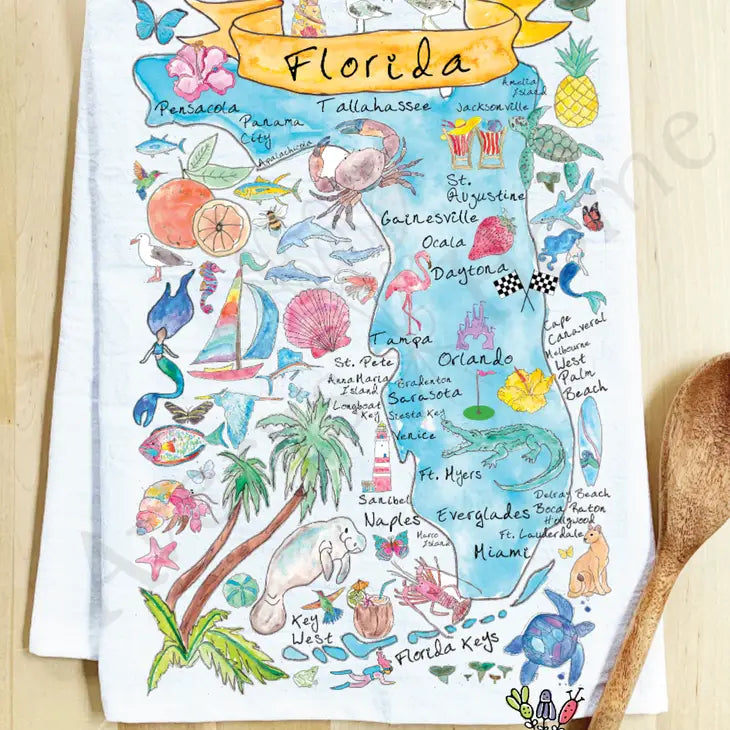 Florida
Amelia
Island
Pensacola
Tallahassee
Jacksonville
Panama
City
Apalachicola
St.
Augustine
Gainesville
Ocala
Daytona
Cape
Canaveral
Tampa
Orlando
Melbourne
West
Palm
Beach
St. Pete
Anna Maria
Island
Bradenton
Sarasota
Longboat
Key
Siesta Key
Venice
Ft. Myers
Sanibel
Naples
Marco
Island
Everglades
Delray Beach
Boca Raton
Hollywood
Ft. Lauderdale
Miami
Key
West
Florida Keys